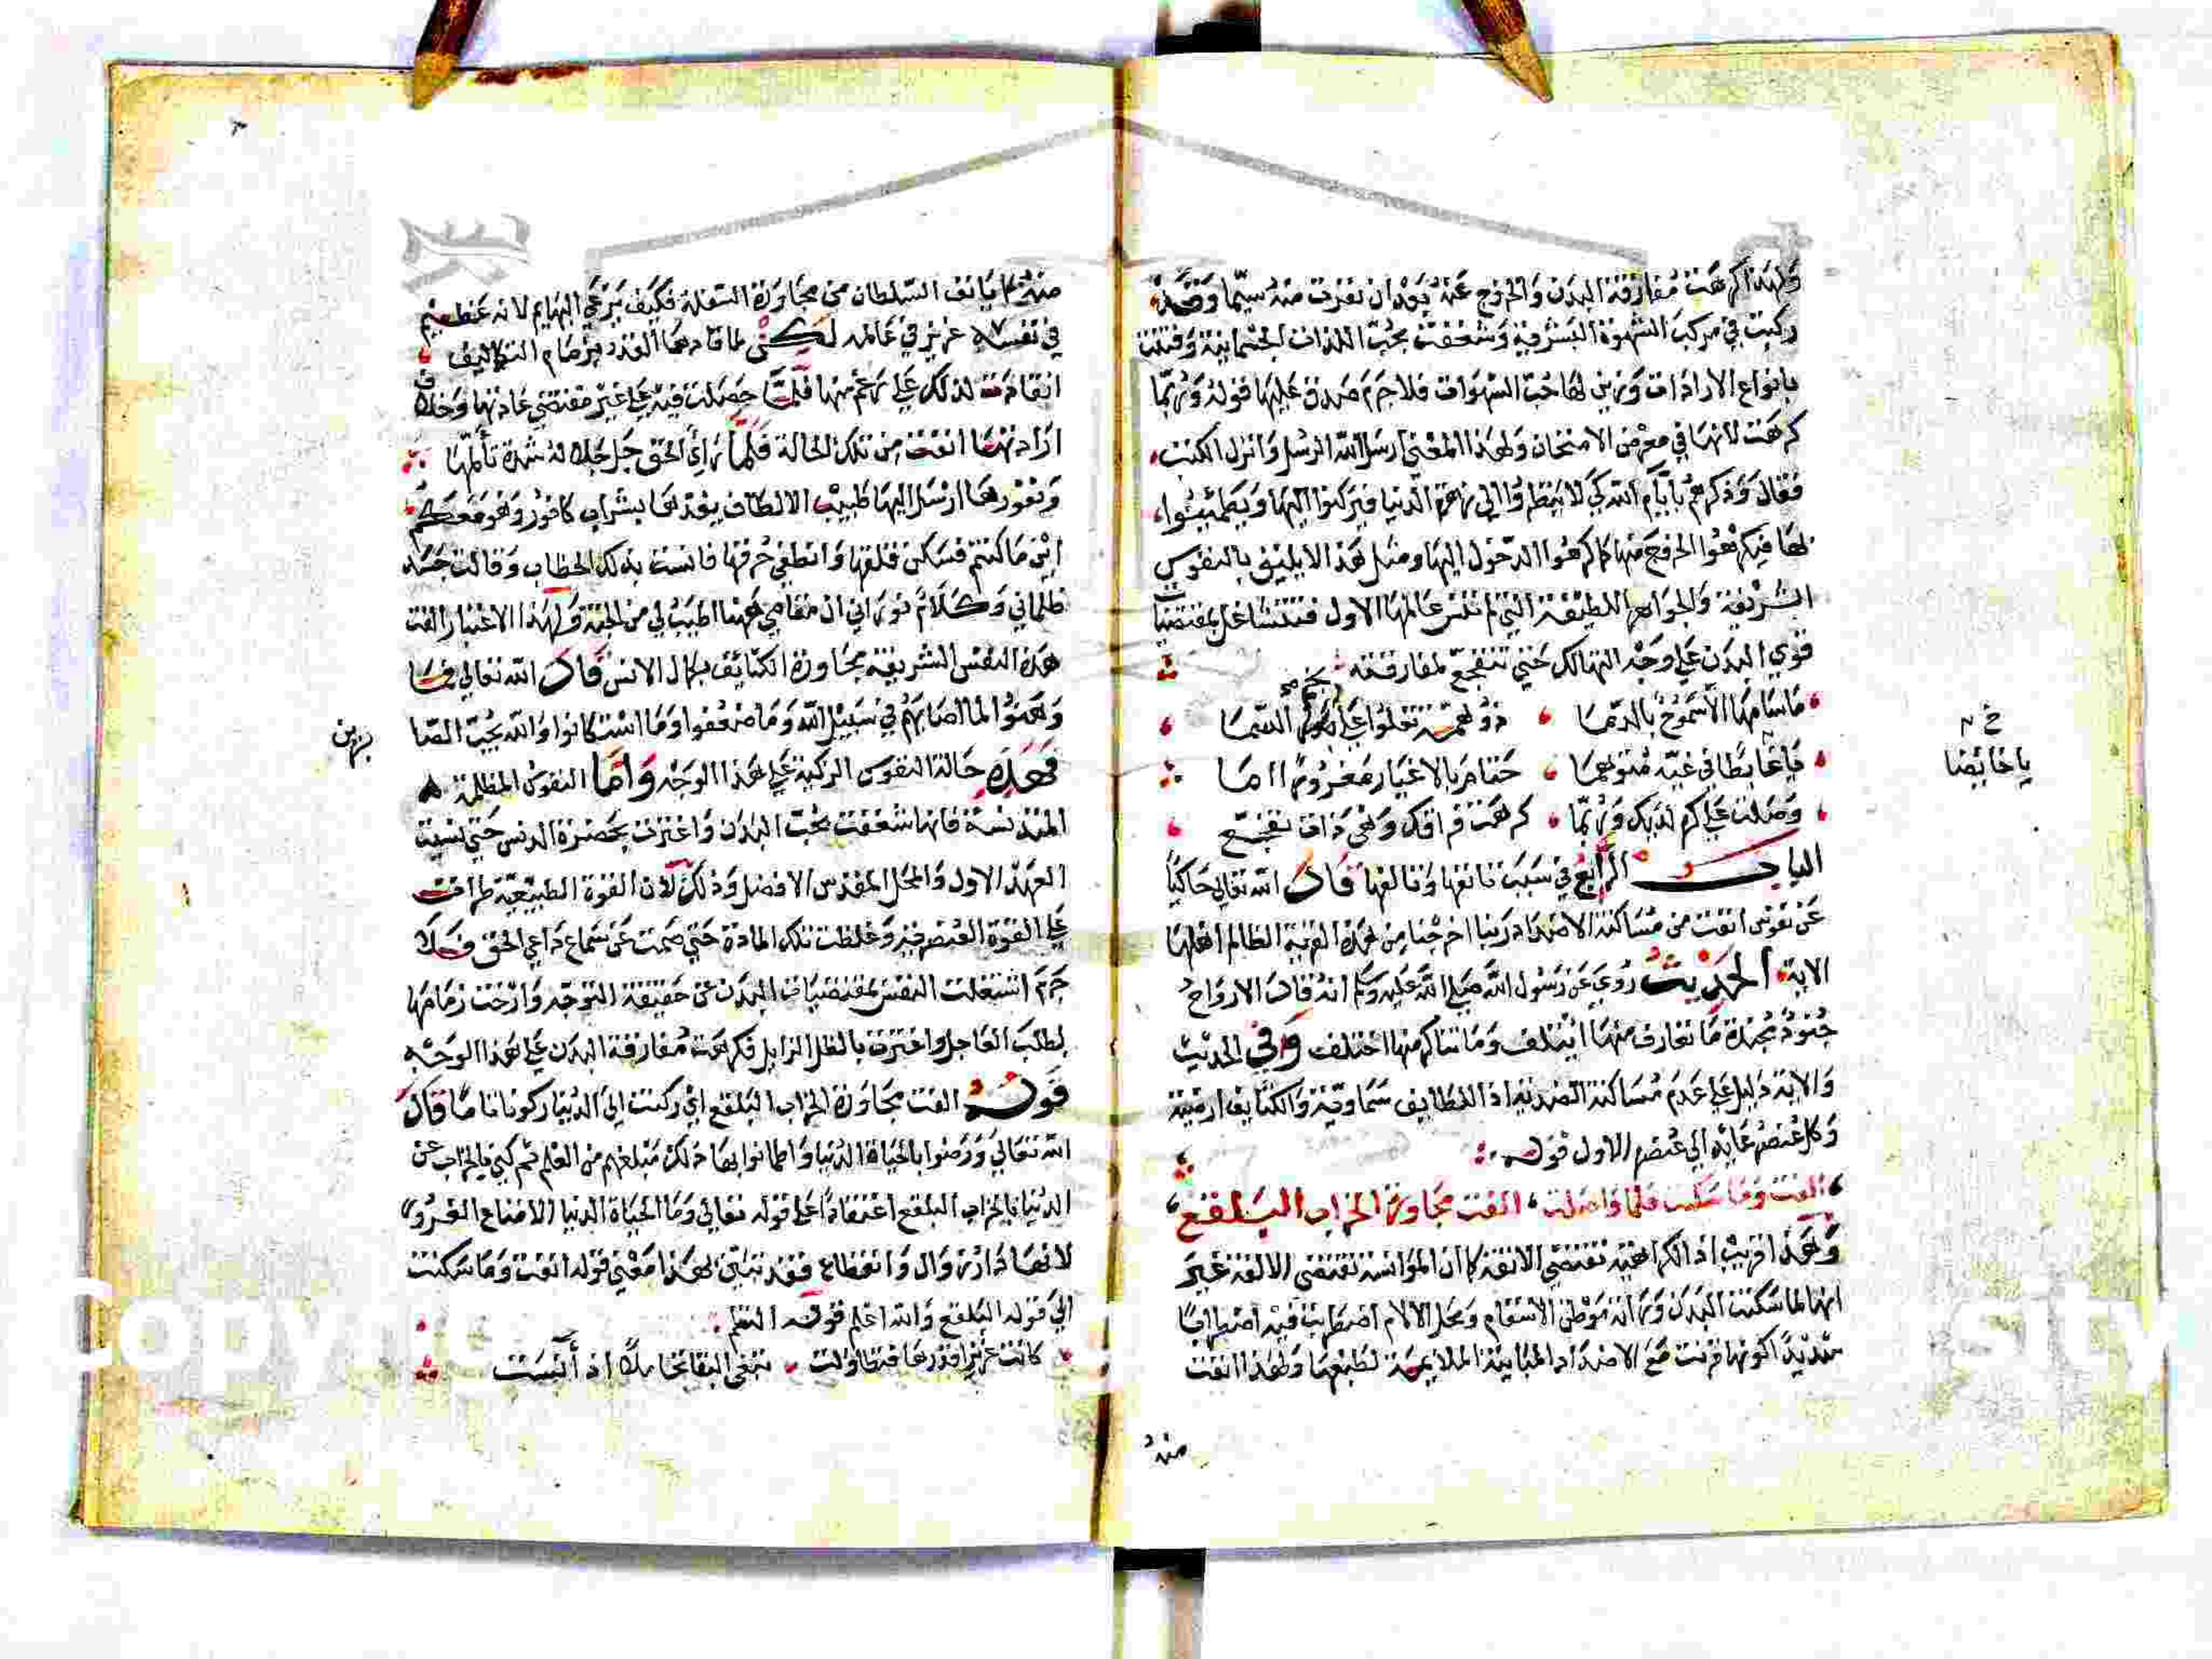 ولهذا كرهت مفارقة البدن والخروج عنه بعد ان نفرت منه سيما وقد
ركبت في مركب الشهوة البشرية وشغفت بحب اللذات الجثمانية وفتنت
بانواع الارادات وزين لها حب الشهوات فلا جرم صدق عليها قوله وربما
كرهت لانها في معرض الامتحان ولهذا المعنى ارسل الله الرسل وانزل الكتب
فقال وذكرهم بأيام الله كي لا ينظروا الي زهرة الدنيا فيركنوا اليها ويطمئنوا
لها فيكرهوا الخروج منها كما كرهوا الدخول اليها ومثل هذا لا يليق بالنفوس
الشريفة والجواهر اللطيفة التي لم تنس عالمها الاول فتتشاغل بمقتضيات
قوي البدن علي وجه التهالك حتي تتفجع لمفارقته
ما سامها الا سموخ بالدما ذو همة تعلوا علي السما
يا غايطا في غيه متوهما حتام بالاغيار مغروم اما
خ ن
يا خايضا
وصلت علي كره لديك وربما كرهت فراقك وهي ذات تفجع
الباب الرابع في سبب تانفها وتالفها قال الله تعالي حاكيا
عن نفوس انفت من مساكنة الاضداد ربنا اخرجنا من هذه القرية الظالم اهلها
الاية الحديث روي عن رسول الله صلي الله عليه وسلم انه قال الارواح
جنود مجندة ما تعارف منها ائتلف وما تناكر منها اختلف وفي الحديث
والاية دليل علي عدم مساكنة الضدية اذ اللطايف سماوية والكثايف ارضية
وكل عنصر عايد الي عنصره الاول قوله
انفت وما سكنت فلما واصلت الفت مجاورة الخراب البلقع
وهذا قريب اذ الكراهية تقتضي الانفة كما ان الموانسة تقتضي الالفة غير
انها لما سكنت البدن ورات موطن الاسقام ومحل الالام اضطربت فيه اضطرابا
شديدا لكونها قرنت مع الاضداد المباينة الملايمة لطبعها ولهذا انفت
منه
منه كما يانف السلطان من مجاورة السفلة فكيف يرعي البهايم لانه عظيم
في نفسه عزيز في عالمه لكن لما قادها القدر بزمام التكاليف
انقادت لذلك علي رغم منها فلما حصلت فيه علي غير مقتضي عادتها وخلاف
ارادتها انفت من تلك الحالة فلما راي الحق جل جلاله شدة تألمها
ونفورها ارسل اليها طبيب الالطاف يغذيها بشراب كافور وهو معكم
اين ما كنتم فسكن قلقها وانطفي حرقها فانست بذلك الخطاب وقالت جسد
ظلماني وكلام نوراني ان مقامي ههنا اطيب لي من الجنة ولهذا الاعتبار الفت
هذه النفس الشريفة مجاورة الكثايف بكمال الانس قال الله تعالي فما
وهنوا لما اصابهم في سبيل الله وما ضعفوا وما استكانوا والله يحب الصا
برين
فهذه حالة النفوس الزكية علي هذا الوجه واما النفوس المظلمة
المتدنسة فانها شغفت بحب البدن واغترت بحضرة الدنس حتي نسيت
العهد الاول والمحل المقدس الافضل وذلك لان القوة الطبيعية طرات
علي القوة العنصرية وغلظت تلك المادة حتي صمت عن سماع داعي الحق فلا
جرم اشتغلت النفس بمقتضيات البدن عن حقيقة التوجه وارخت زمامها
لطلب العاجل واغترت بالظل الزايل فكرهت مفارقة البدن علي هذا الوجه
قوله الفت مجاورة الخراب البلقع اي ركنت الي الدنيا ركونا تاما قال
الله تعالي ورضوا بالحياة الدنيا واطمانوا بها ذلك مبلغهم من العلم ثم كني بالخراب عن
الدنيا بالخراب البلقع اعتقادا علي قوله تعالي وما الحياة الدنيا الا متاع الغرور
لانها دار زوال وانقطاع فقد تبين لهذا معني قوله انفت وما سكنت
الي قوله البلقع والله اعلم قوله النظم
كانت عزيز قدرها فتطاولت تبغي البقا بخامد اذ أنست